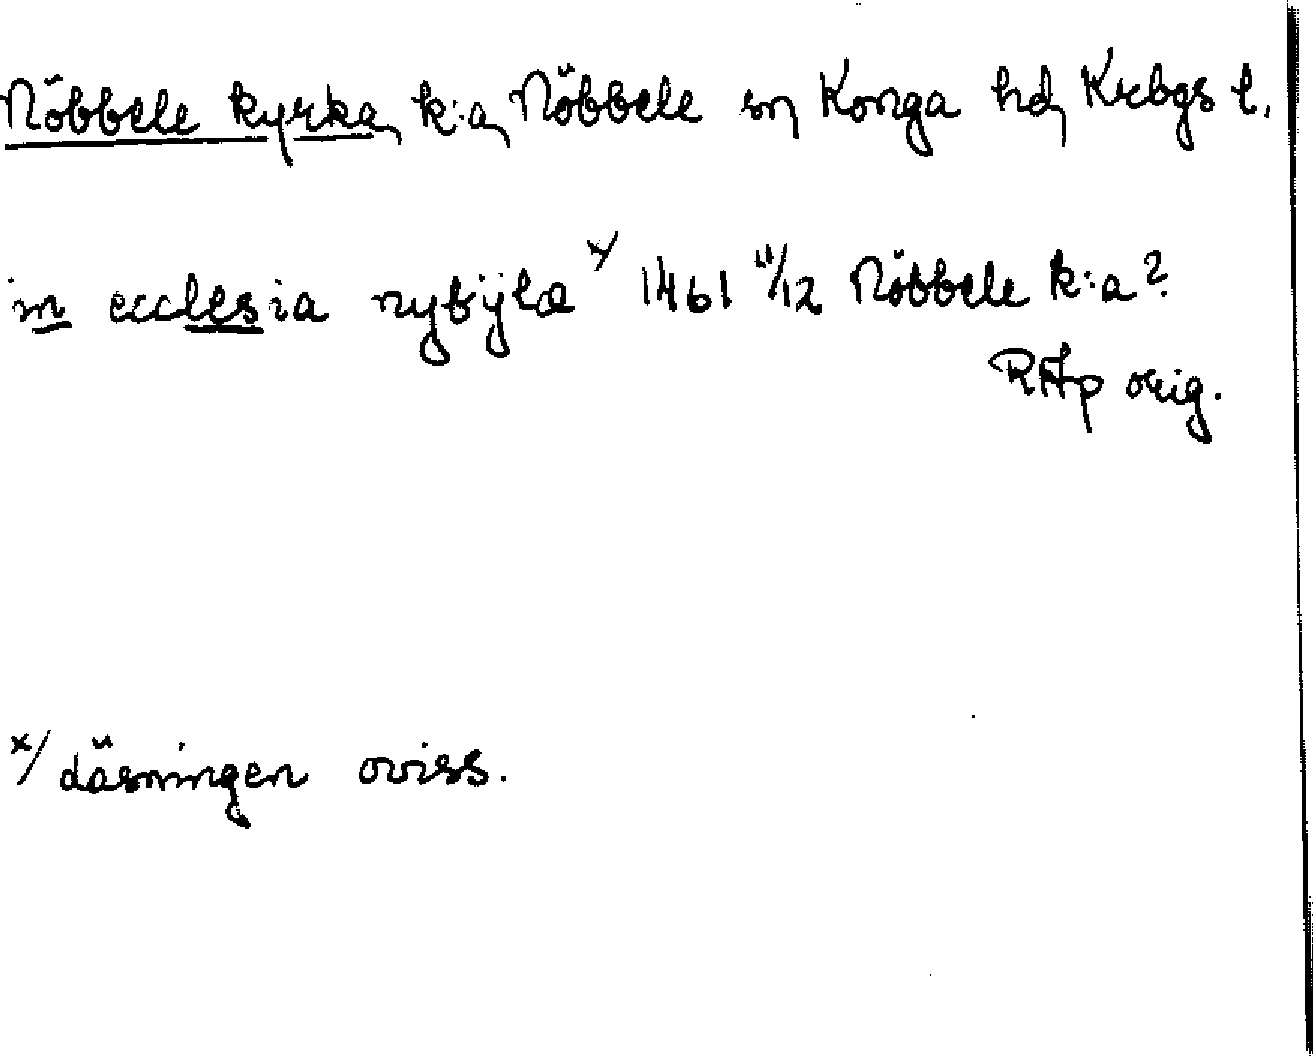 Nöbbele kyrka, k:a, Nöbbele sn, Konga hd, Krbgs l.
in ecclesia nybÿlæ x/ 1461 11/12 Nöbbele k:a?
RAp orig.
x/ läsningen oviss.